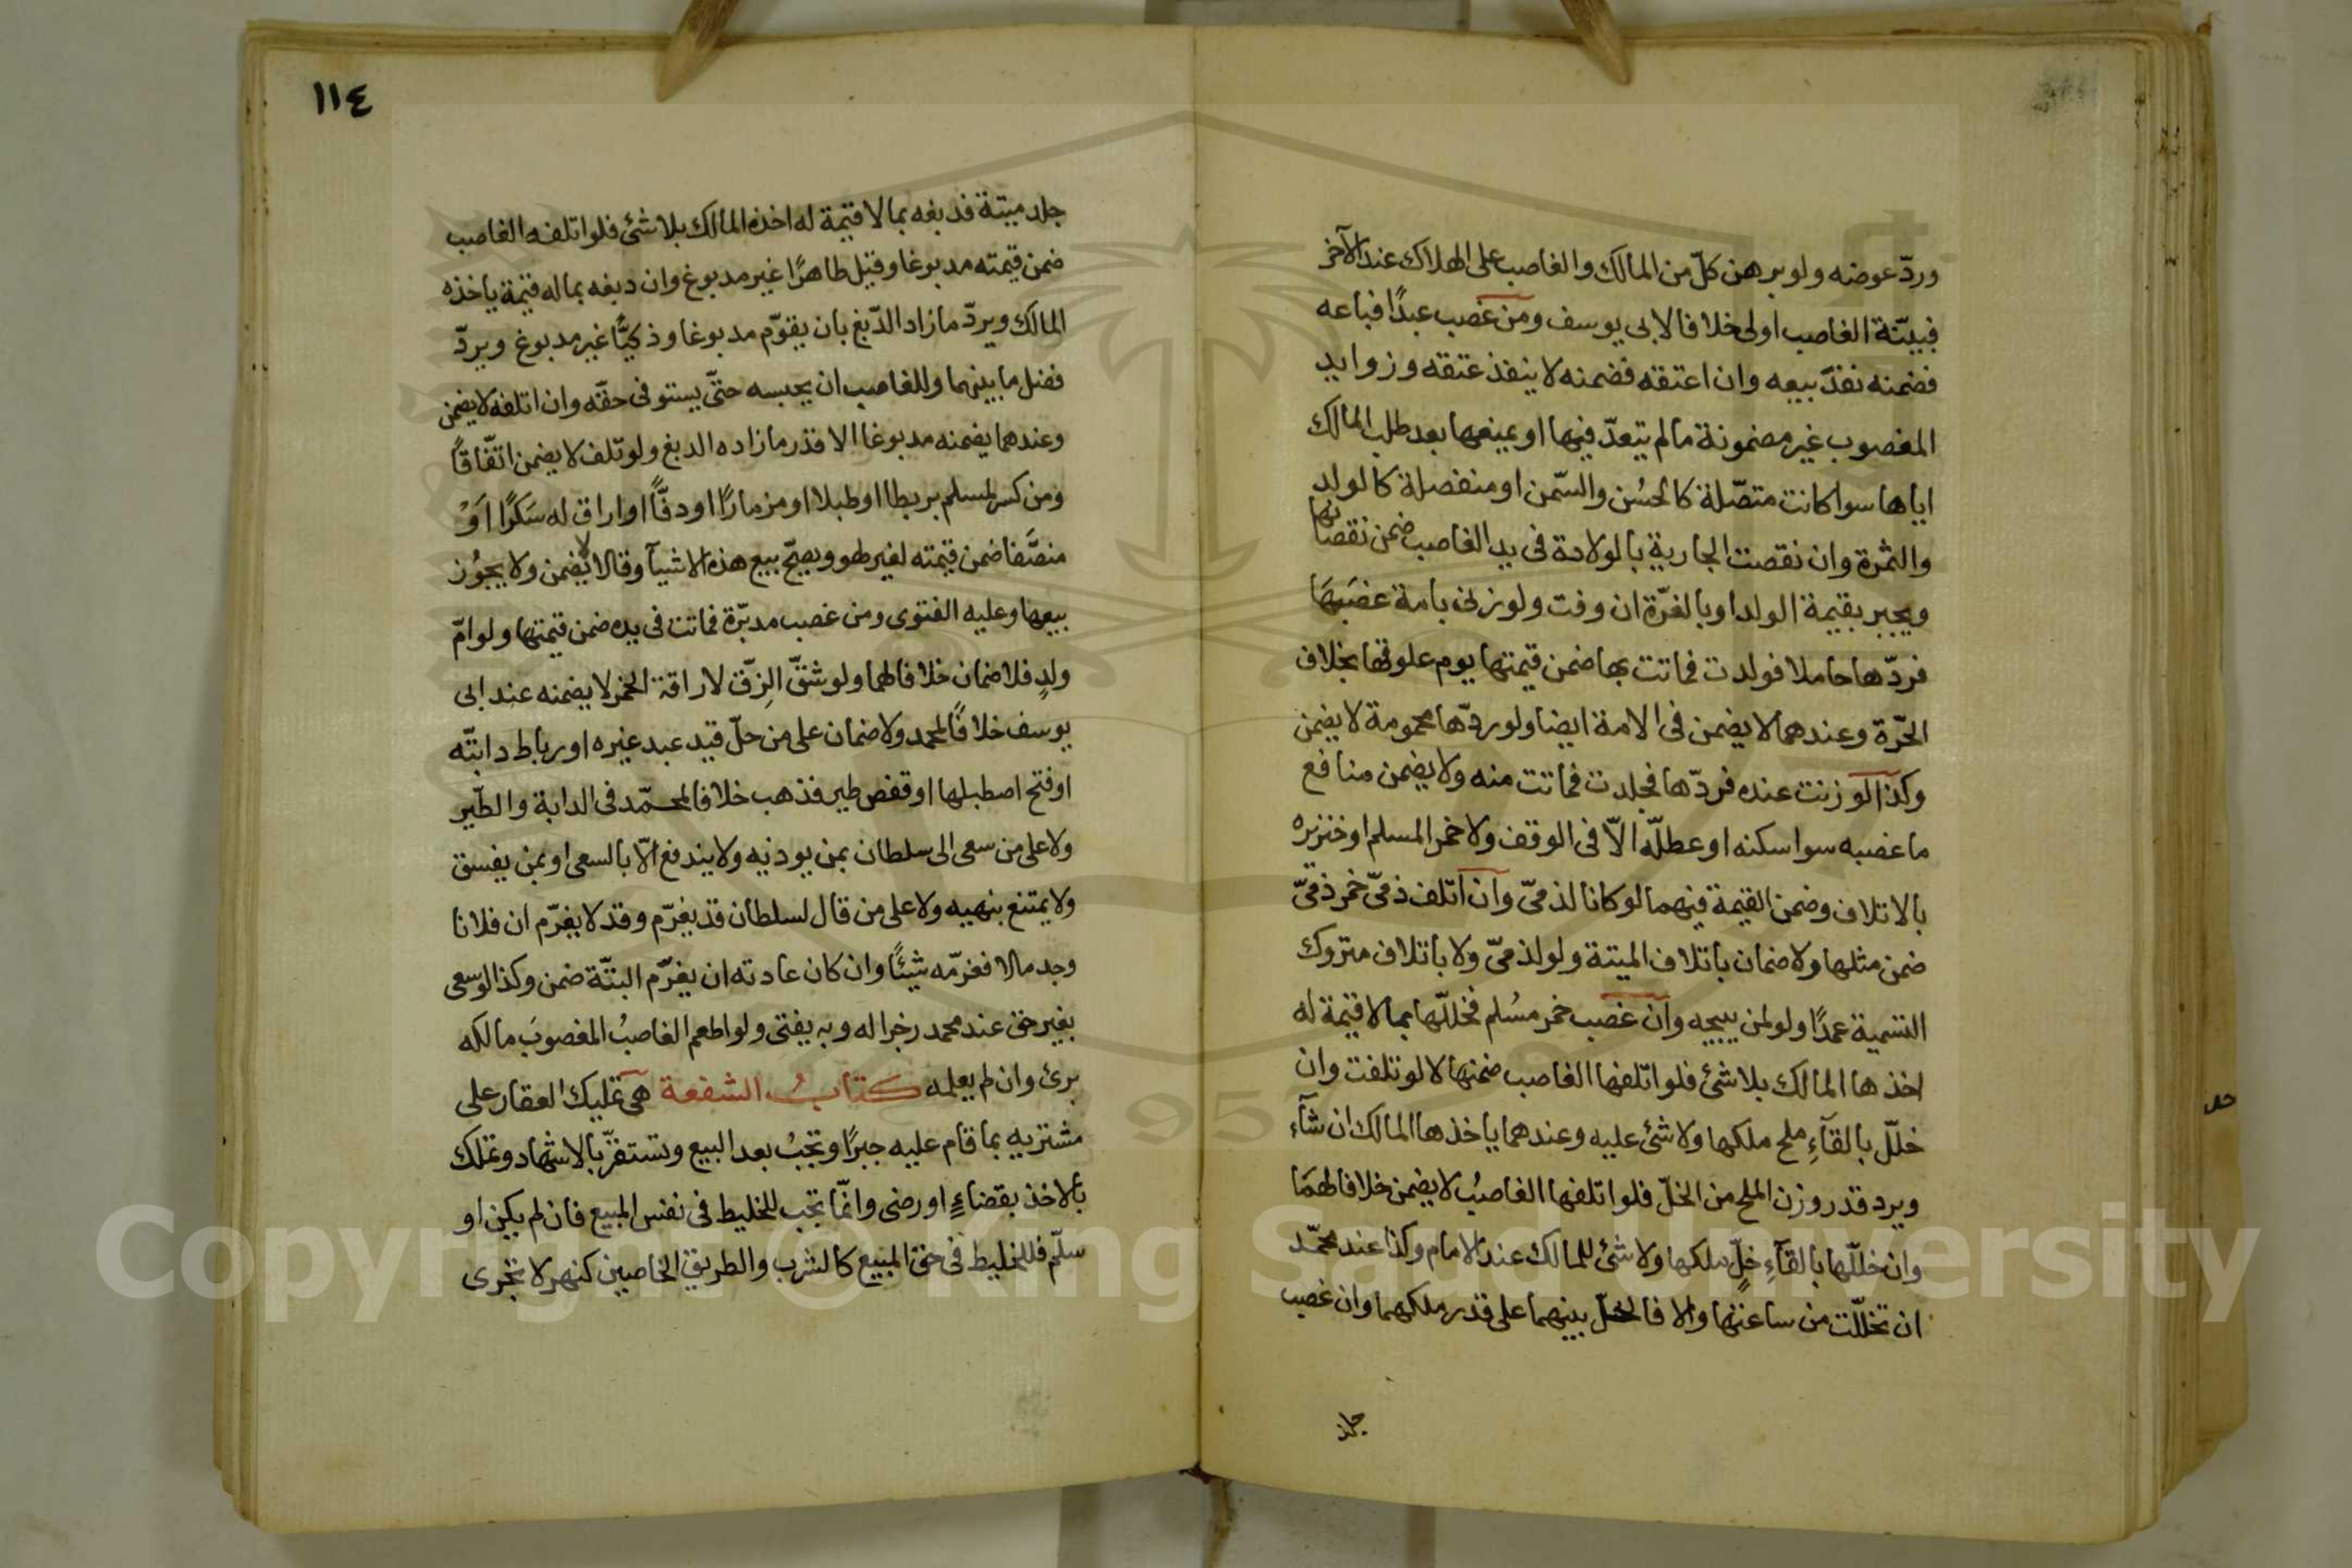 ورد عوضه ولو برهن كلّ من المالك والغاصب على الهلاك عند الآخر
فبيّنة الغاصب اولى خلافا لابى يوسف ومن غصب عبدًا فباعه
فضمنه نفذ بيعه وان اعتقه فضمنه لا ينفذ عتقه وزوايد
المغصوب غير مضمونة مالم يتعدّ فيها او يمنعها بعد طلب المالك
اياها سوا كانت متصّلة كالحسُن والسّمن او منفصلة كالولد
والثمرة وان نقصت الجارية بالولادة فى يد الغاصب ضمن نقصانها
ويجبر بقيمة الولد او بالغرّة ان وفت ولو زنى بامة غصَبهَا
فردّها حاملا فولدت فماتت بها ضمن قيمتها يوم علوقها بخلاف
الحرّة وعندهما لا يضمن فى الامة ايضا ولو ردّها محمومة لا يضمن
وكذا لو زنت عنده فردّها فجلدت فماتت منه ولا يضمن منافع
ما غصبه سوا سكنه او عطلّه الّا فى الوقف ولا خمر المسلم او خنزيره
بالاتلاف وضمن القيمة فيهما لو كانا لذمىّ وان اتلف ذمىّ خمر ذمىّ
ضمن مثلها ولا ضمان باتلاف الميتة ولو لذمىّ ولا باتلاف متروك
التسمية عمدًا ولو لمن يبيحه وان غصب خمر مسُلم فخللّها بما لا قيمة له
اخذها المالك بلا شئ فلو اتلفها الغاصب ضمنها لا لو تلفت وان
خللّ بالقآءِ ملح ملكها ولا شئ عليه وعندهما ياخذها المالك ان شآء
ويرد قدر وزن الملح من الخلّ فلو اتلفها الغاصبُ لا يضمن خلافا لهمَا
وان خللّها بالقآءِ خلٍّ ملكها ولا شئ للمالك عند الامام وكذا عند محمّد
ان تخلّلت من ساعتها والا فالخلّ بينهما على قدر ملكهما وان غصب
جلد
١١٤
جلد ميتة فدبغه بما لا قيمة له اخذه المالك بلا شئ فلو اتلفه الغاصب
ضمن قيمته مدبوغا وقيل طاهرًا غير مدبوغ وان دبغه بماله قيمة ياخذه
المالك ويردّ مازاد الدّبغ بان يقوّم مدبوغا وذكيًّا غير مدبوغ ويردّ
فضل ما بينهما وللغاصب ان يحبسه حتّى يستوفى حقّه وان اتلفه لا يضمن
وعندهما يضمنه مدبوغا الا قدر مازاده الدبغ ولو تلف لا يضمن اتّفاقًا
ومن كسر لمسلم بربطا او طبلا او مزمارًا او دفّاً او اراق له سَكرًا اَوْ
منصَّفا ضمن قيمته لغير لهو ويصحّ بيع هذه الاشيآ وقالا لا يضمن ولا يجوُز
بيعها وعليه الفتوى ومن غصب مدبّرة فماتت فى يده ضمن قيمتها ولو امّ
ولدٍ فلا ضمان خلافا لهما ولو شقّ الزِقّ لاراقة الخمر لا يضمنه عند ابى
يوسف خلافًا لمحمد ولا ضمان على من حلّ قيد عبد غيره او رباط دابتّه
او فتح اصطبلها او قفص طير فذهب خلافا لمحمّد فى الدابة والطّير
ولا على من سعى الى سلطان بمن يوذيه ولا يندفع الّا بالسعى او بمن يفسق
ولا يمتنع بنهيه ولا على من قال لسلطان قد يغرّم وقد لا يغرّم ان فلانا
وجد مالا فغرّمه شيئًا وان كان عادته ان يغرّم البتّة ضمن وكذا لو سعى
بغير حق عند محمد زجرا له وبه يفتى ولو اطعم الغاصبُ المغصوبَ مالكه
برئ وان لم يعلمه كتابُ الشفعة هى تمليك العقار على
مشتريه بما قام عليه جبرًا وتجبُ بعد البيع وتستقرّ بالاشهاد وتملك
بالاخذ بقضاءٍ او رضى وانّما تجب للخليط فى نفس المبيع فان لم يكن او
سلّم فللخليط فى حق المبيع كالشرب والطريق الخاصين كنهر لا تجرى
Copyright © King Saud University